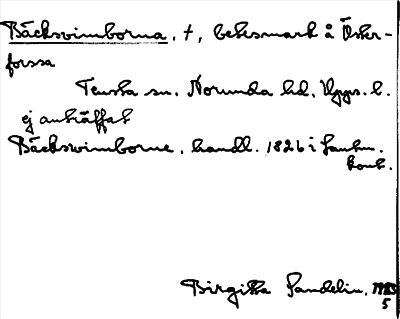 Bäcksvimborna, †, betesmark å Öster-
forssa
Tensta sn. Norunda hd. Upps. l.
ej anträffat
Bäckswimborne, handl. 1826 i Lantm.
kont.
Birgitta Sandelin, 
5